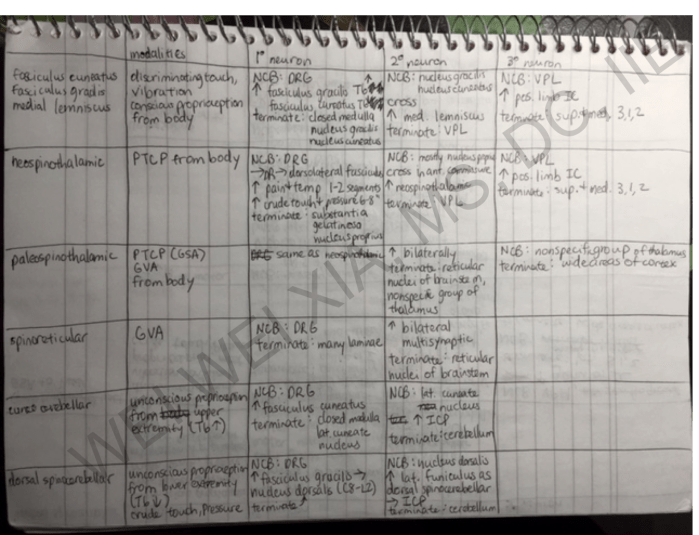 modalities 1° neuron 2° neuron 3° neuron
fasiculus cuneatus
fasiculus gracilis
medial lemniscus
discriminating touch,
vibration
conscious proprioception
from body
NCB: DRG
↑ fasiculus gracilis T6
fasiculus cuneatus T6
terminate: closed medulla
nucleus gracilis
nucleus cuneatus
NCB: nucleus gracilis
nucleus cuneatus
cross
↑ med. lemniscus
terminate: VPL
NCB: VPL
↑ pos. limb IC
terminate: sup. + med. 3,1,2
neospinothalamic
PTCP from body
NCB: DRG
→ dorsolateral fasciculus
↑ pain + temp 1-2 segments
↑ crude touch + pressure 6-8
terminate: substantia
gelatinosa
nucleus proprius
NCB: mostly nucleus proprius
cross in ant. commissure
↑ neospinothalamic
terminate: VPL
NCB: VPL
↑ pos. limb IC
terminate: sup. + med. 3,1,2
paleospinothalamic
PTCP (GSA)
GVA
from body
same as neospinothalamic
↑ bilaterally
terminate: reticular
nuclei of brainstem,
nonspecific group of
thalamus
NCB: nonspecific group of thalamus
terminate: wide areas of cortex
spinoreticular
GVA
NCB: DRG
terminate: many laminae
↑ bilateral
multisynaptic
terminate: reticular
nuclei of brainstem
cuneocerebellar
unconscious proprioception
from upper
extremity (T6↑)
NCB: DRG
↑ fasiculus cuneatus
terminate: closed medulla
lat. cuneate
nucleus
NCB: lat. cuneate
nucleus
↑ ICP
terminate: cerebellum
dorsal spinocerebellar
unconscious proprioception
from lower extremity
(T6↓)
crude touch, pressure
NCB: DRG
↑ fasiculus gracilis →
nucleus dorsalis (C8-L2)
terminate
NCB: nucleus dorsalis
↑ lat. funiculus as
dorsal spinocerebellar
→ ICP
terminate: cerebellum
WEIWEI XIA, MS, DC